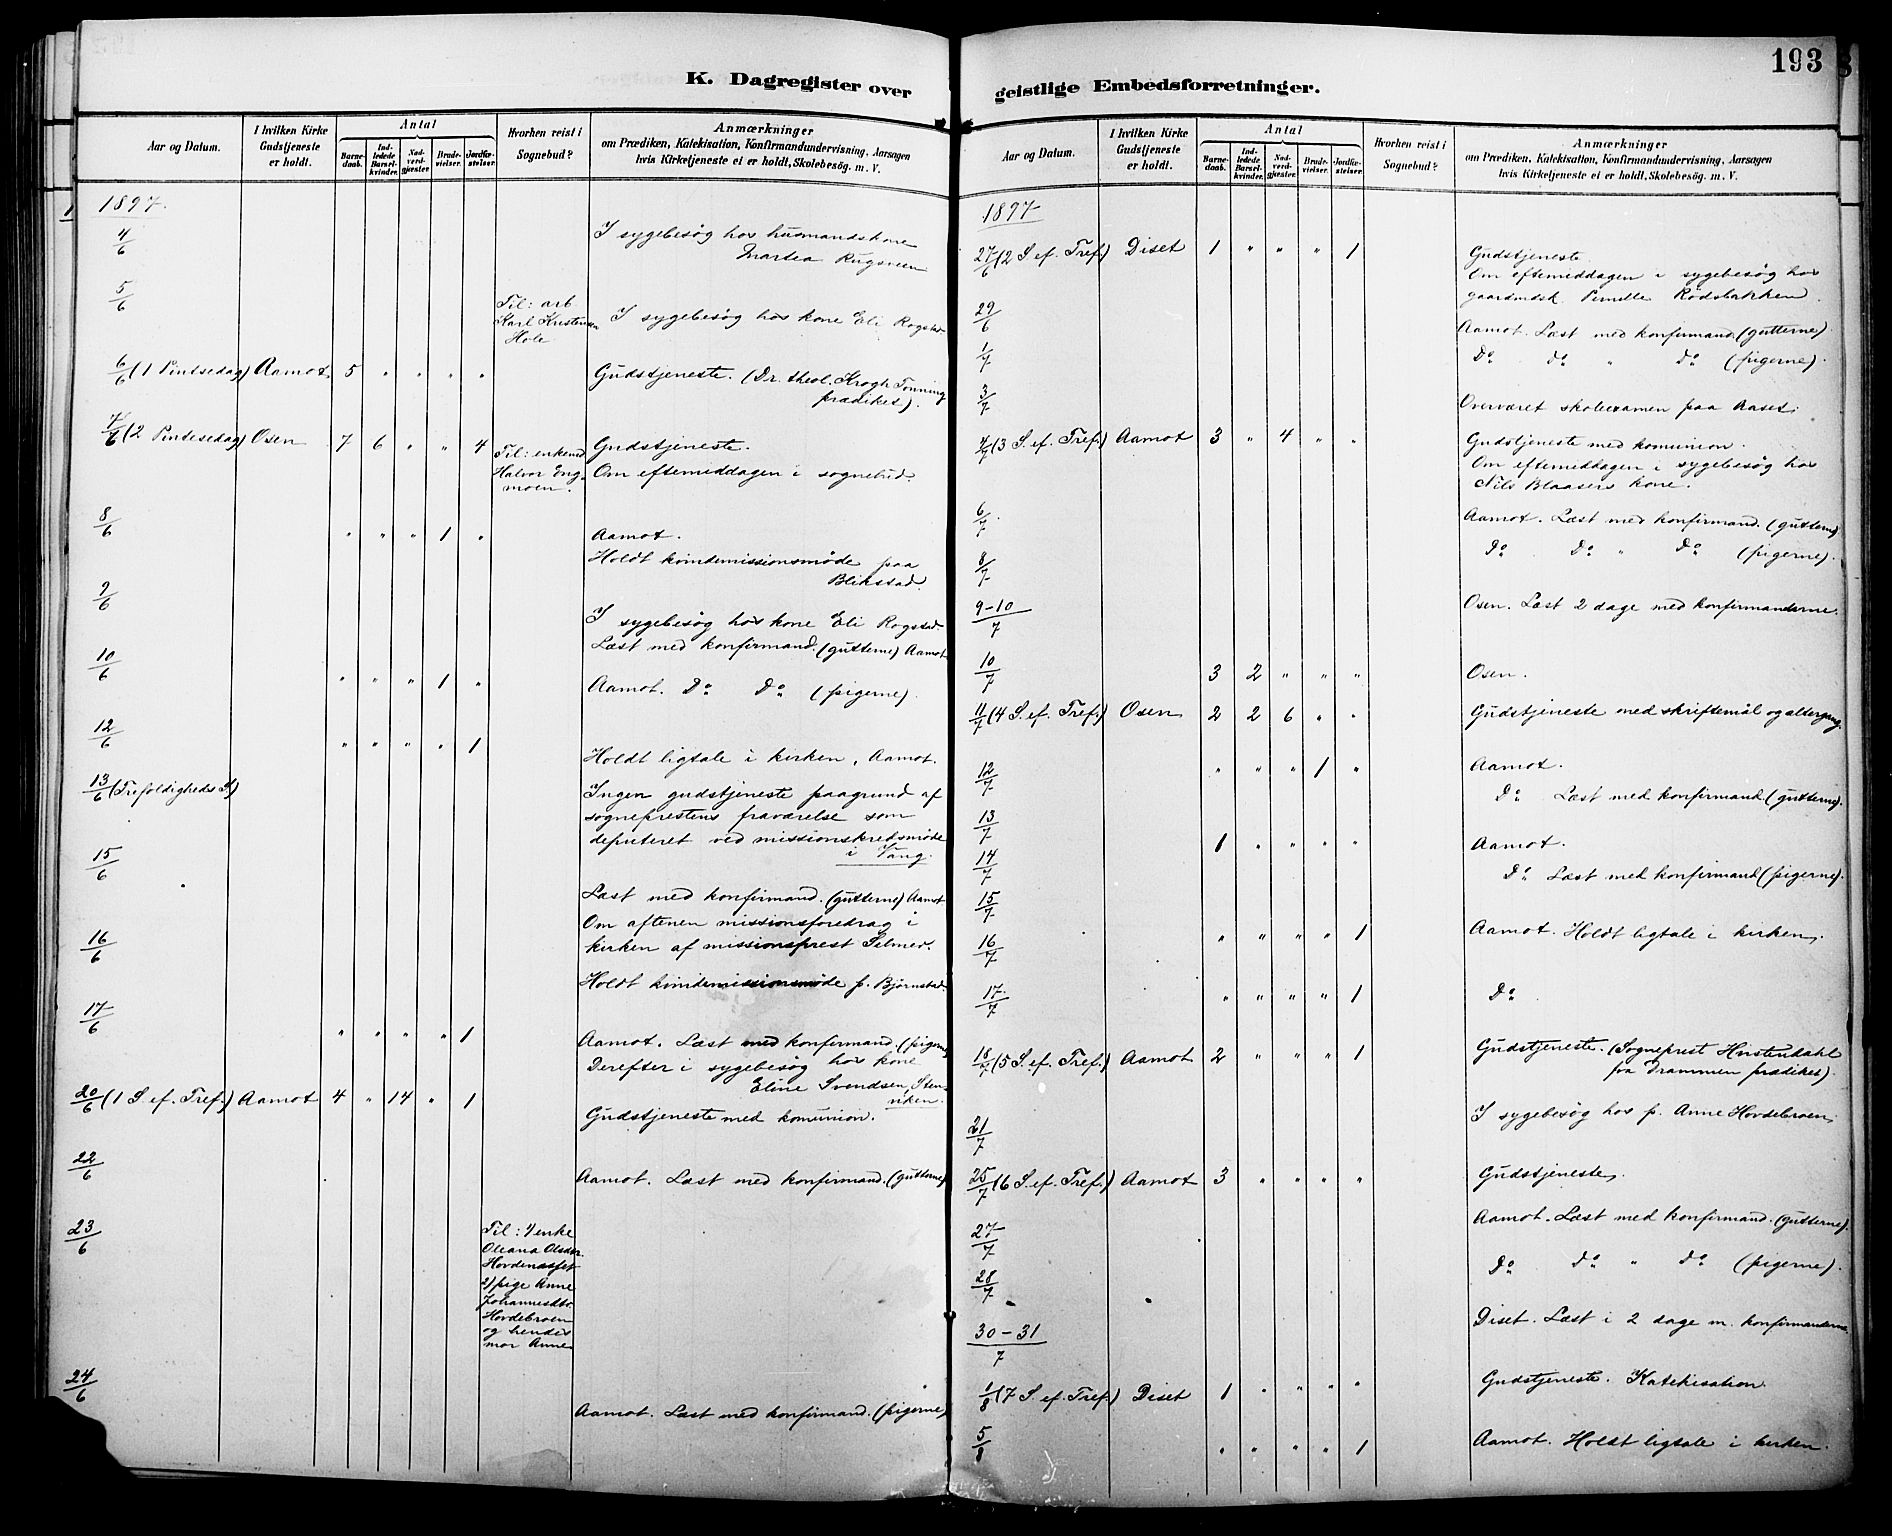 193
K. Dagregister over geistlige Embedsforretninger.
Aar og Datum.
I hvilken Kirke Gudstjeneste er holdt.
Antal
Barnedaab.
Indledede Barselkvinder.
Nadverdgjæster.
Brudevielser.
Jordfæstelser.
Hvorhen reist i Sognebud?
Anmærkninger
om Prædiken, Katekisation, Konfirmandundervisning, Aarsagen
hvis Kirketjeneste ei er holdt, Skolebesøg. m. V.
1897.
4/6 I sygebesøg hos husmandskone
Martea Rugsveen
5/6 Til: arb. Karl Kristensen Hole I sygebesøg hos kone Eli Rogstad
6/6 (1 Pintsedag) Aamot. 5 " " " " Gudstjeneste. (Dr. theol. Krogh Tonning
prædiket).
7/6 (2 Pintsedag) Osen 7 6 " " 4 Til: enkemd Halvor Engmoen. Gudstjeneste.
Om eftermiddagen i sognebud.
8/6 " " " 1 " Aamot.
Holdt kvindemissionsmøde paa
Blikstad.
9/6 I sygebesøg hos kone Eli Rogstad.
Læst med konfirmand. (gutterne) Aamot
10/6 " " " 1 " Aamot. Do Do (pigerne).
12/6 " " " " 1 Holdt ligtale i kirken, Aamot.
13/6 (Trefoldigheds S.) Ingen gudstjeneste paagrund af
sogneprestens fraværelse som
deputeret ved missionskredsmøde
i Vang.
15/6 Læst med konfirmand. (gutterne) Aamot
Om aftenen missionsforedrag i
kirken af missionsprest Selmer.
16/6 Holdt kvindemissionsmøde p. Bjørnstad.
17/6 " " " " 1 Aamot. Læst med konfirmand. (pigerne)
Derefter i sygebesøg hos kone
Eline Svendsen, Stenviken.
20/6 (1 S. ef. Tref.) Aamot 4 " 14 " 1 Gudstjeneste med komunion.
22/6 Aamot. Læst med konfirmand. (gutterne)
23/6 Til: 1/ enke
Oleana Olsdtr.
Hovdenæsset
2/ pige Anne
Johannesdtr.
Hovdebroen
og hendes
mor Anne
24/6 Aamot. Læst med konfirmand. (pigerne)
Aar og Datum.
I hvilken Kirke Gudstjeneste er holdt.
Antal
Barnedaab.
Indledede Barselkvinder.
Nadverdgjæster.
Brudevielser.
Jordfæstelser.
Hvorhen reist i Sognebud?
Anmærkninger
om Prædiken, Katekisation, Konfirmandundervisning, Aarsagen
hvis Kirketjeneste ei er holdt, Skolebesøg. m. V.
1897
27/6 (2 S. ef. Tref.) Diset 1 " " " 1 Gudstjeneste.
Om eftermiddagen i sygebesøg hos
gaardmdsk. Pernille Rödsbakken.
29/6 Aamot. Læst med konfirmand. (gutterne).
1/7 Do Do " Do (pigerne).
3/7 Overværet skoleexamen paa Aaset.
4/7 (3 S. ef. Tref.) Aamot 3 " 4 " " Gudstjeneste med komunion.
Om eftermiddagen i sygebesøg hos
Nils Blaasers kone.
6/7 Aamot. Læst med konfirmand. (gutterne)
8/7 Do Do " Do (pigerne).
9-10/7 Osen. Læst 2 dage med konfirmanderne.
10/7 3 2 " " " Osen.
11/7 (4 S. ef. Tref.) Osen 2 2 6 " " Gudstjeneste med skriftemål og altergang.
12/7 " " " 1 " Aamot.
13/7 Do Læst med konfirmand (gutterne).
14/7 1 " " " " Aamot.
15/7 Do Læst med konfirmand (pigerne).
16/7 " " " " 1 Aamot. Holdt ligtale i kirken.
17/7 " " " " 1 Do
18/7 (5 S. ef. Tref.) Aamot 2 " " " 1 Gudstjeneste. (Sogneprest
fra Drammen prædiket).
21/7 I sygebesøg hos p. Anne Hovdebroen.
25/7 (6 S. ef. Tref.) Aamot 3 " " " " Gudstjeneste.
27/7 Aamot. Læst med konfirmand. (gutterne).
28/7 Do Do " Do (pigerne).
30-31/7 Diset. Læst i 2 dage m. konfirmanderne
1/8 (7 S. ef. Tref.) Diset 1 " " " " Gudstjeneste. Katekisation
5/8 " " " " 1 Aamot. Holdt ligtale i kirken.